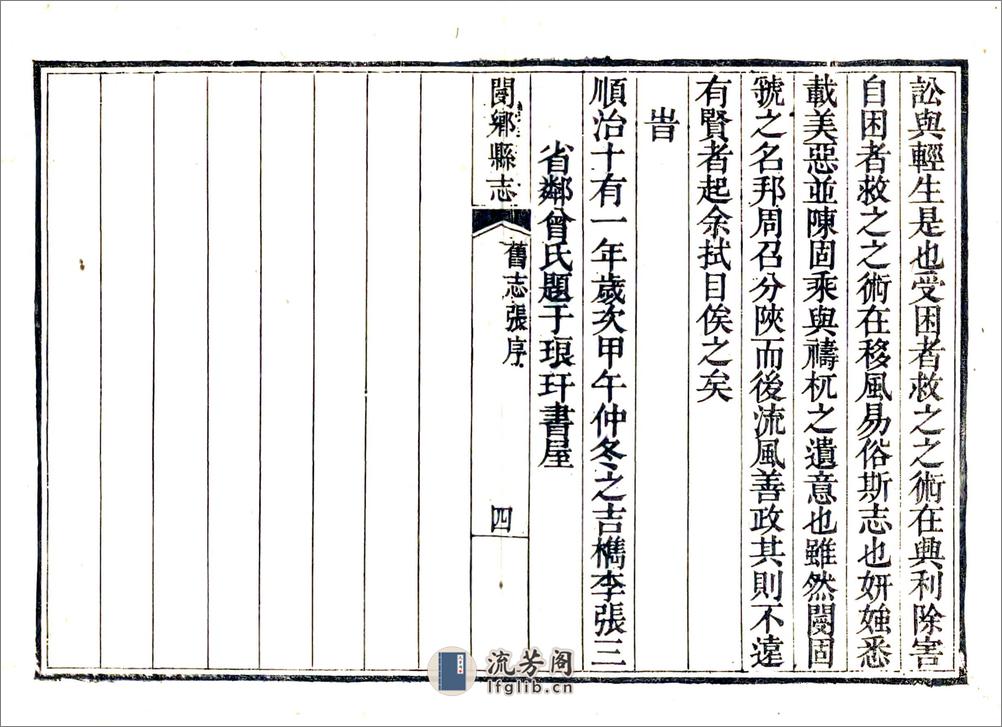 訟與輕生是也受困者救之之術在興利除害
自困者救之之術在移風易俗斯志也妍媸悉
載美惡並陳固乘與禱杌之遺意也雖然閿固
虢之名邦周召分陝而後流風善政其則不遠
有賢者起余拭目俟之矣
旹
順治十有一年歲次甲午仲冬之吉檇李張三
省鄰曾氏題于琅玕書屋
閿鄉縣志
舊志張序
四
流芳阁
lfglib.cn